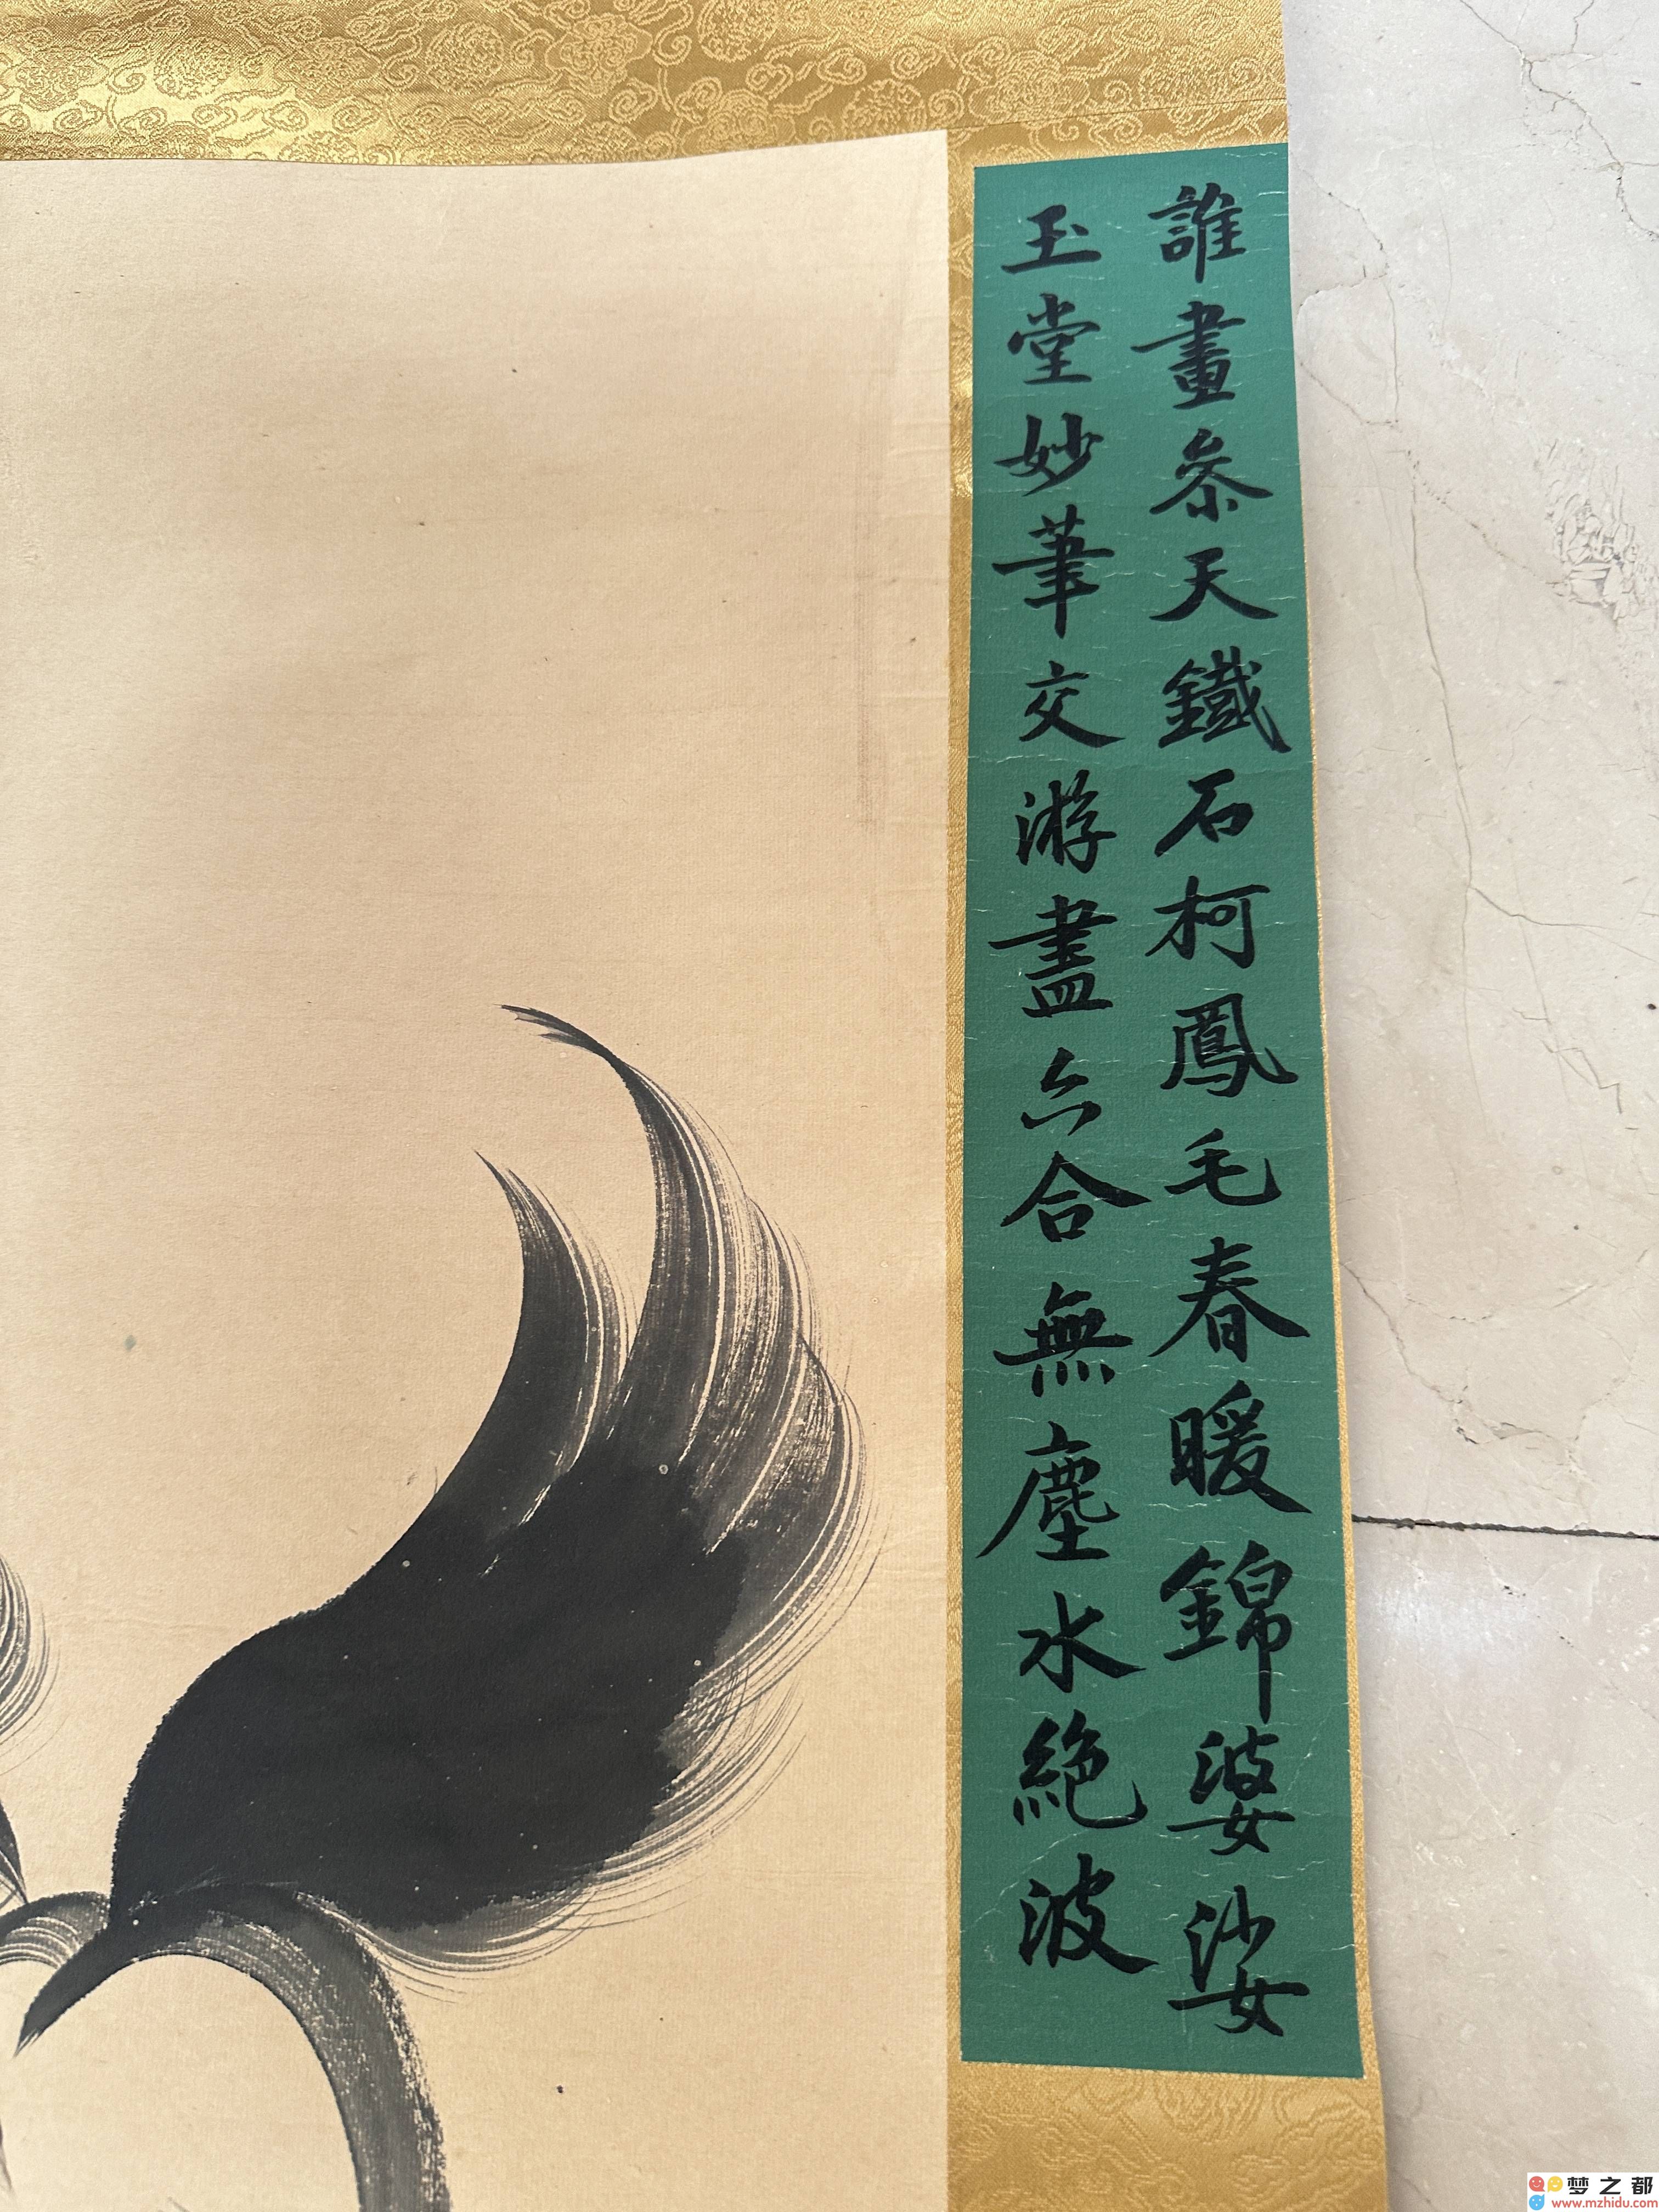 誰畫叅天鐵石柯鳳毛春暖錦婆娑
玉堂妙筆交游盡六合無塵水絕波
梦之都
www.mzhidu.com